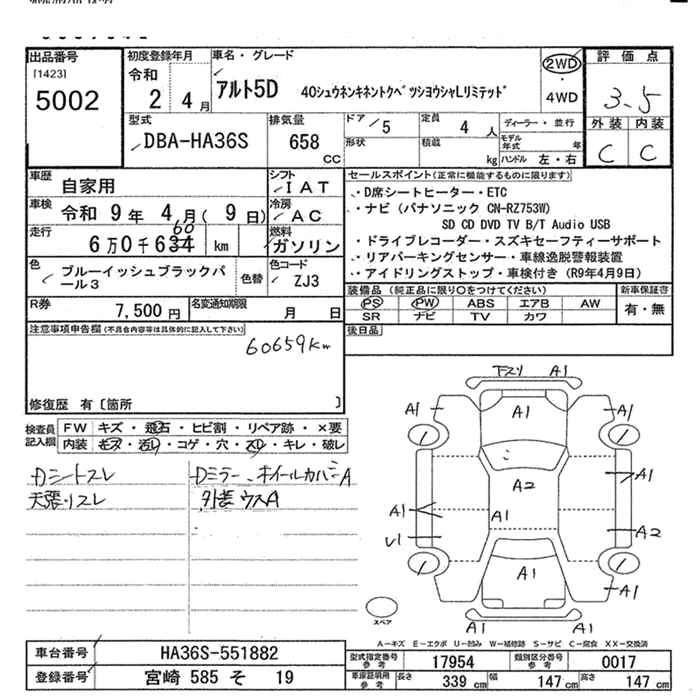 出品番号
[1423]
5002
初度登録年月
令和
2 4月
車名・グレード
アルト5D 40シュウネンキネントクベツシヨウシャLリミテッド
2WD
・
4WD
評価点
3.5
外装 内装
C C
型式
DBA-HA36S
排気量
658 CC
ドア
5
定員
4 人
ディーラー・並行
形状
積載
kg
モデル年式 年
ハンドル 左・右
車歴
自家用
シフト
IAT
車検
令和 9年 4月( 9日)
冷房
AC
走行
6万0千634 km
60
燃料
ガソリン
色
ブルーイッシュブラックパール3
色替
色コード
ZJ3
R券
7,500円
名変通知期限
月 日
セールスポイント(正常に機能するものに限ります)
・D席シートヒーター・ETC
・ナビ(パナソニック CN-RZ753W)
SD CD DVD TV B/T Audio USB
・ドライブレコーダー・スズキセーフティーサポート
・リアパーキングセンサー・車線逸脱警報装置
・アイドリングストップ・車検付き(R9年4月9日)
装備品(純正品に限り○をつけてください)
PS PW ABS エアB AW
SR ナビ TV カワ
新車保証書
有・無
後日品
注意事項申告欄(不具合内容等は具体的に記入して下さい)
60659km
修復歴 有〔箇所 〕
検査員記入欄
FW キズ・飛石・ヒビ割・リペア跡・×要
内装 モス・汚レ・コゲ・穴・スレ・キレ・破レ
Dシートスレ
天張リスレ
Dミラー、ホイールカバーA
外装ウスA
下スリ A1
A1 A1 A1
A2
A1 A1 A1
U1 A2
A1 A1
A1 A1
スペア
A-キズ E-エクボ U-凹み W-補修跡 S-サビ C-腐食 XX-交換済
車台番号
HA36S-551882
登録番号
宮崎 585 そ 19
型式指定番号参考
17954
類別区分番号参考
0017
車庫証明用参考
長さ
339 cm
幅
147 cm
高さ
147 cm